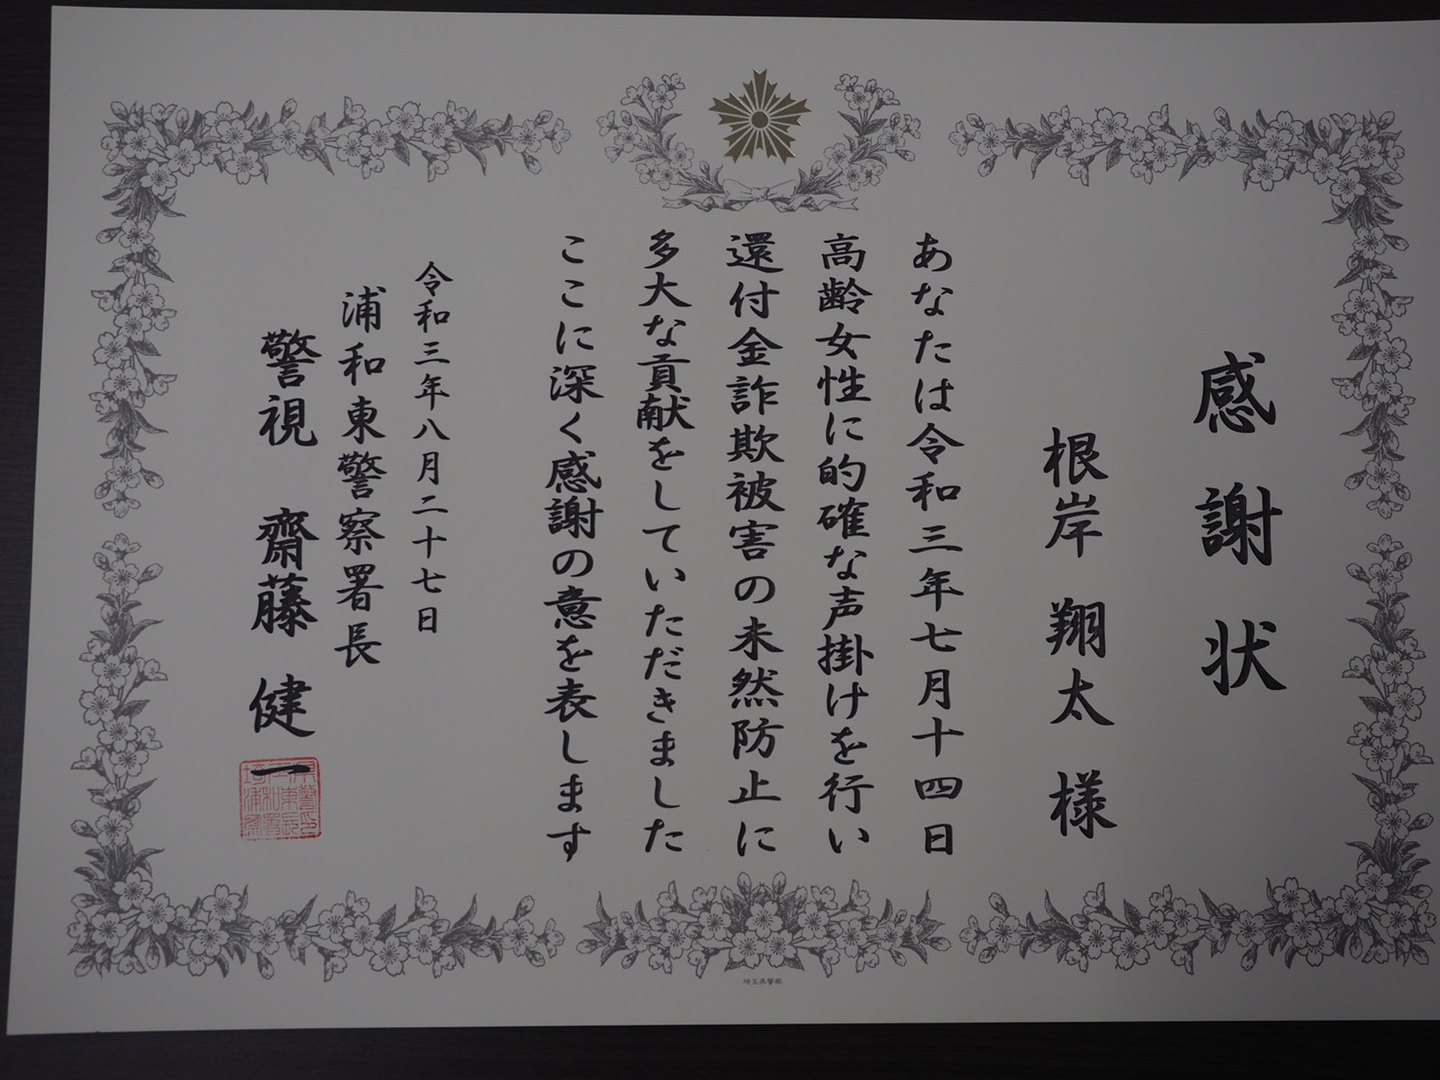 感謝状
根岸 翔太 様
あなたは令和三年七月十四日
高齢女性に的確な声掛けを行い
還付金詐欺被害の未然防止に
多大な貢献をしていただきました
ここに深く感謝の意を表します
令和三年八月二十七日
浦和東警察署長
警視 齋藤 健一
埼玉県警察